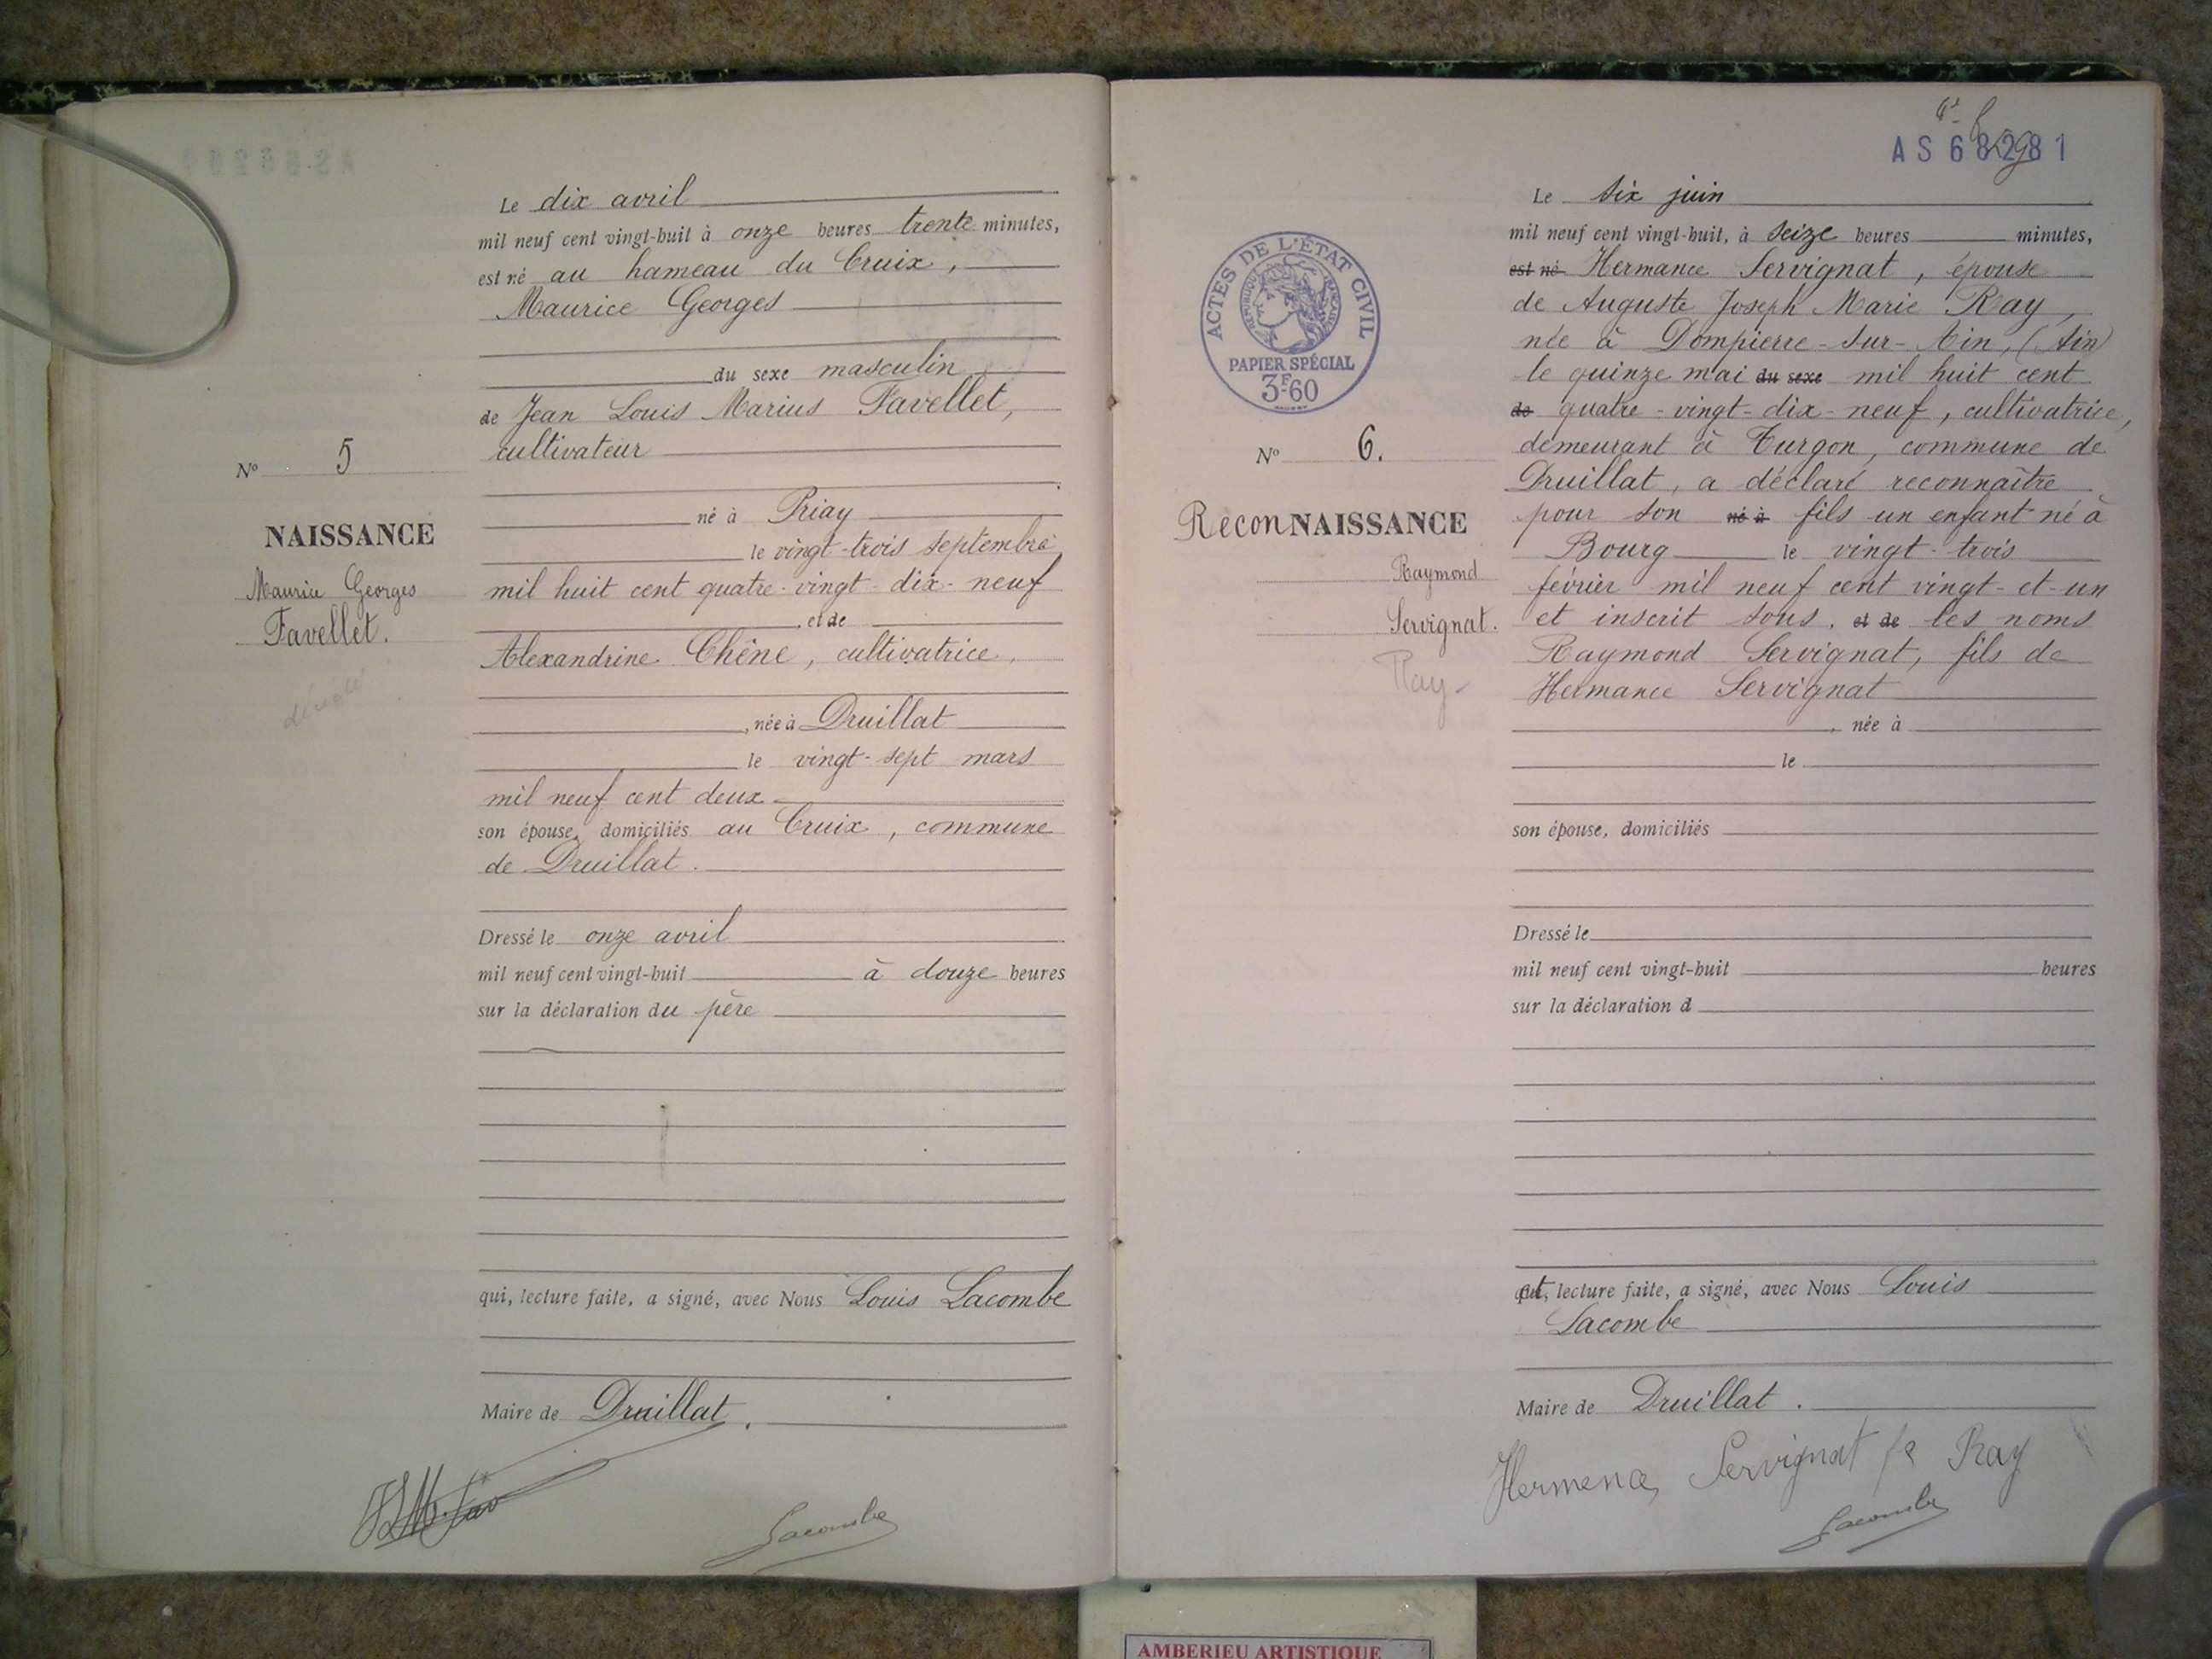 Le dix avril
mil neuf cent vingt-huit à onze heures trente minutes,
est né au hameau du Cruix,
Maurice Georges
du sexe masculin
de Jean Louis Marius Favellet,
cultivateur
né à Priay
le vingt-trois septembre
mil huit cent quatre-vingt-dix-neuf
, et de
Alexandrine Chêne, cultivatrice,
, née à Druillat
le vingt-sept mars
mil neuf cent deux
son épouse, domiciliés au Cruix, commune
de Druillat.
Dressé le onze avril
mil neuf cent vingt-huit à douze heures
sur la déclaration du père
qui, lecture faite, a signé, avec Nous Louis Lacombe
Maire de Druillat.
Lacombe
N° 5
NAISSANCE
Maurice Georges
Favellet.
AS 68281
ACTES DE L'ÉTAT CIVIL
RÉPUBLIQUE FRANÇAISE
PAPIER SPÉCIAL
3F.60
N° 6.
ReconNAISSANCE
Raymond
Servignat.
Ray
Le six juin
mil neuf cent vingt-huit, à seize heures minutes,
est né Hermance Servignat, épouse
de Auguste Joseph Marie Ray,
née à Dompierre-sur-Ain, (Ain)
le quinze mai du sexe mil huit cent
de quatre-vingt-dix-neuf, cultivatrice,
demeurant à Turgon, commune de
Druillat, a déclaré reconnaître
pour son né à fils un enfant né à
Bourg le vingt-trois
février mil neuf cent vingt-et-un
et inscrit sous, et de les noms
Raymond Servignat, fils de
Hermance Servignat
, née à
le
son épouse, domiciliés
Dressé le
mil neuf cent vingt-huit heures
sur la déclaration d
et, lecture faite, a signé, avec Nous Louis
Lacombe
Maire de Druillat.
Hermence Servignat fe Ray
Lacombe
AMBERIEU ARTISTIQUE